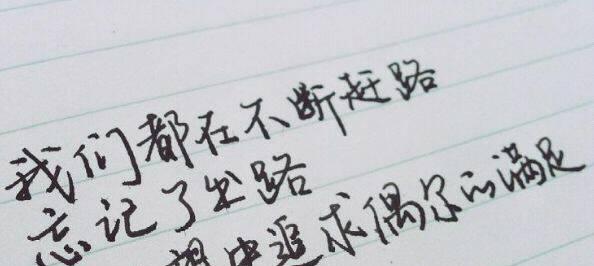 我们都在不断赶路
忘记了出路
中追求偶尔的满足